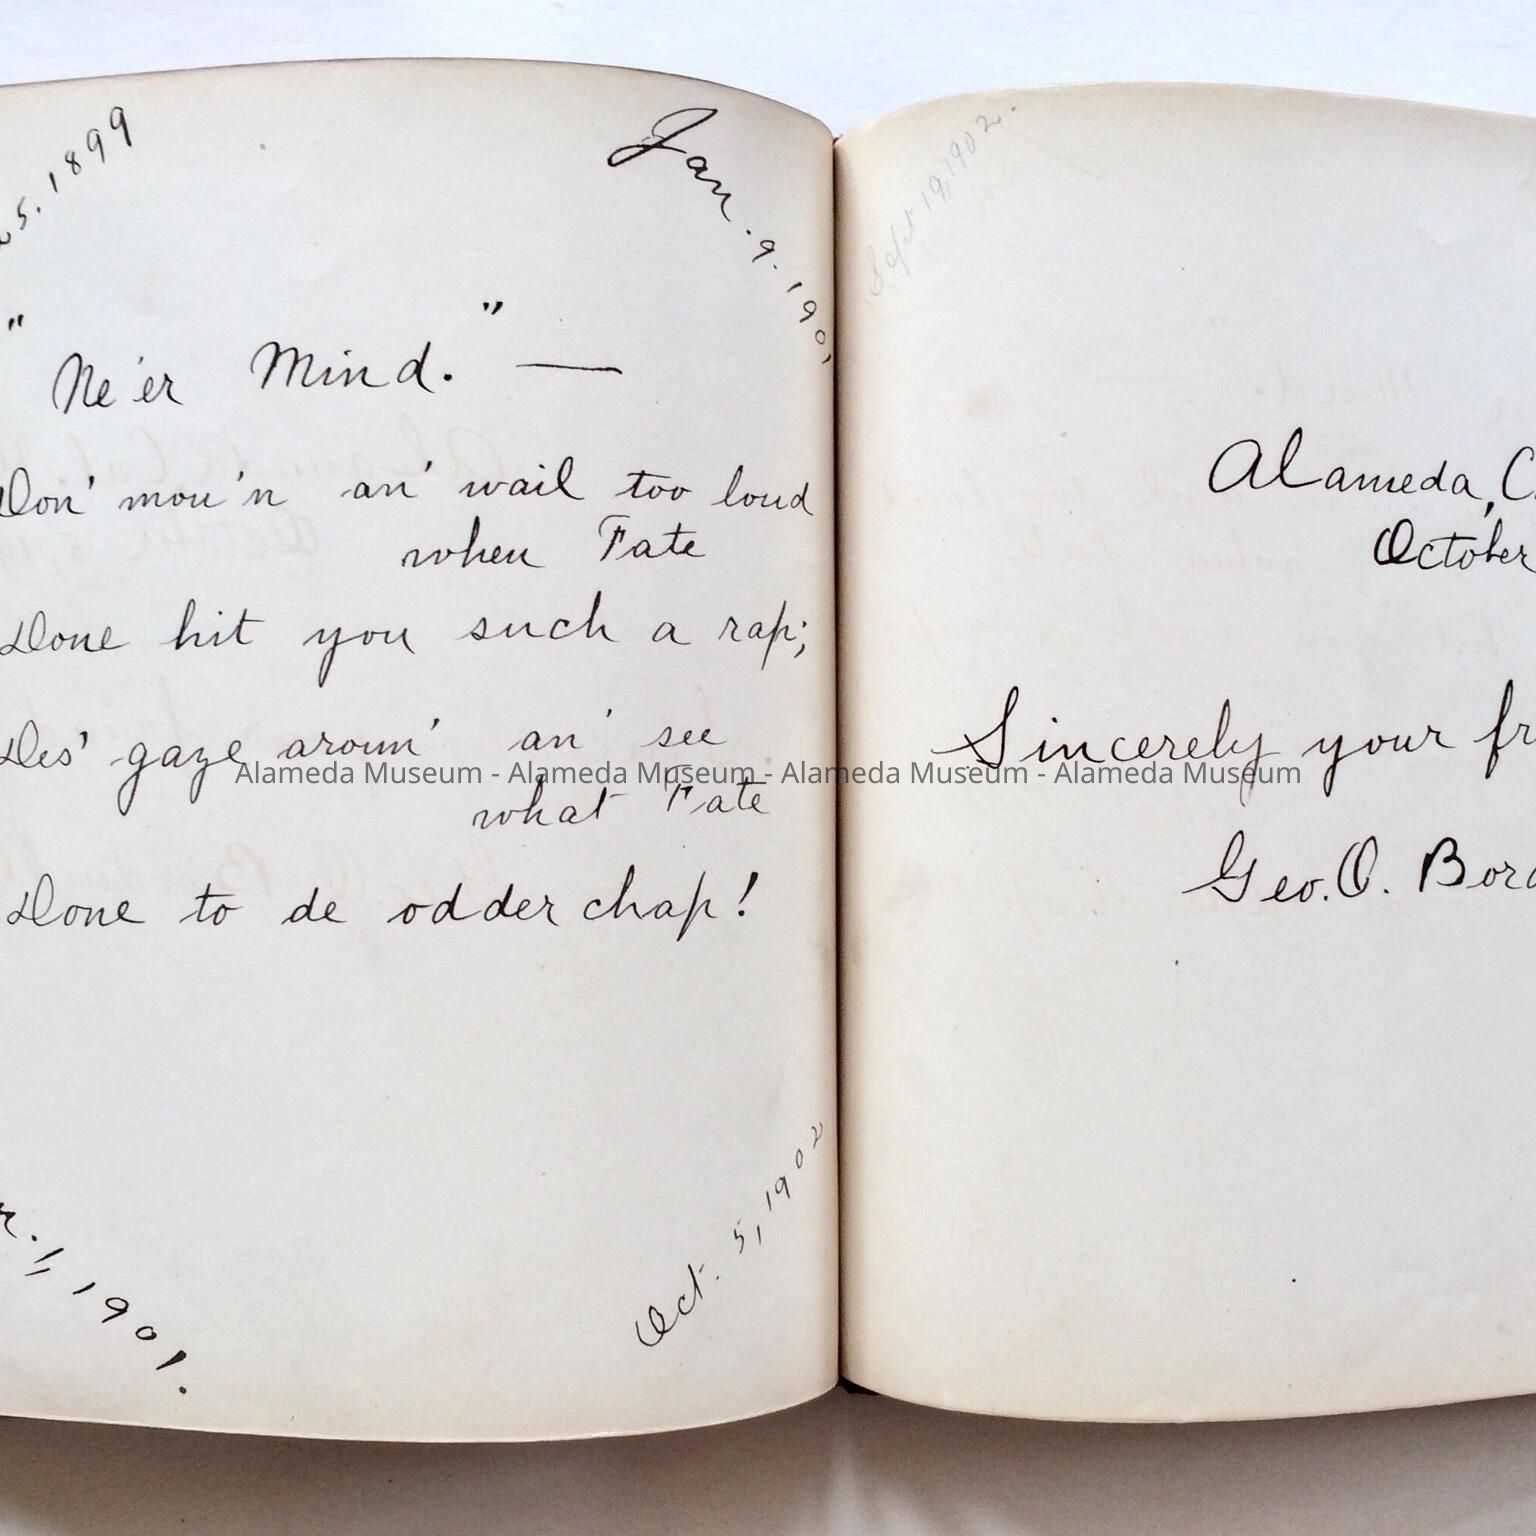 5. 1899
Jan. 9. 1901
"Ne'er Mind." —
Don' mou'n an' wail too loud
when Fate
Done hit you such a rap;
Des' gaze aroun' an' see
what Fate
Done to de odder chap!
1, 1901.
Oct. 5, 1902
Sept 19, 1902.
Alameda, C
October
Sincerely your fr
Geo. O. Bord
Alameda Museum - Alameda Museum - Alameda Museum - Alameda Museum